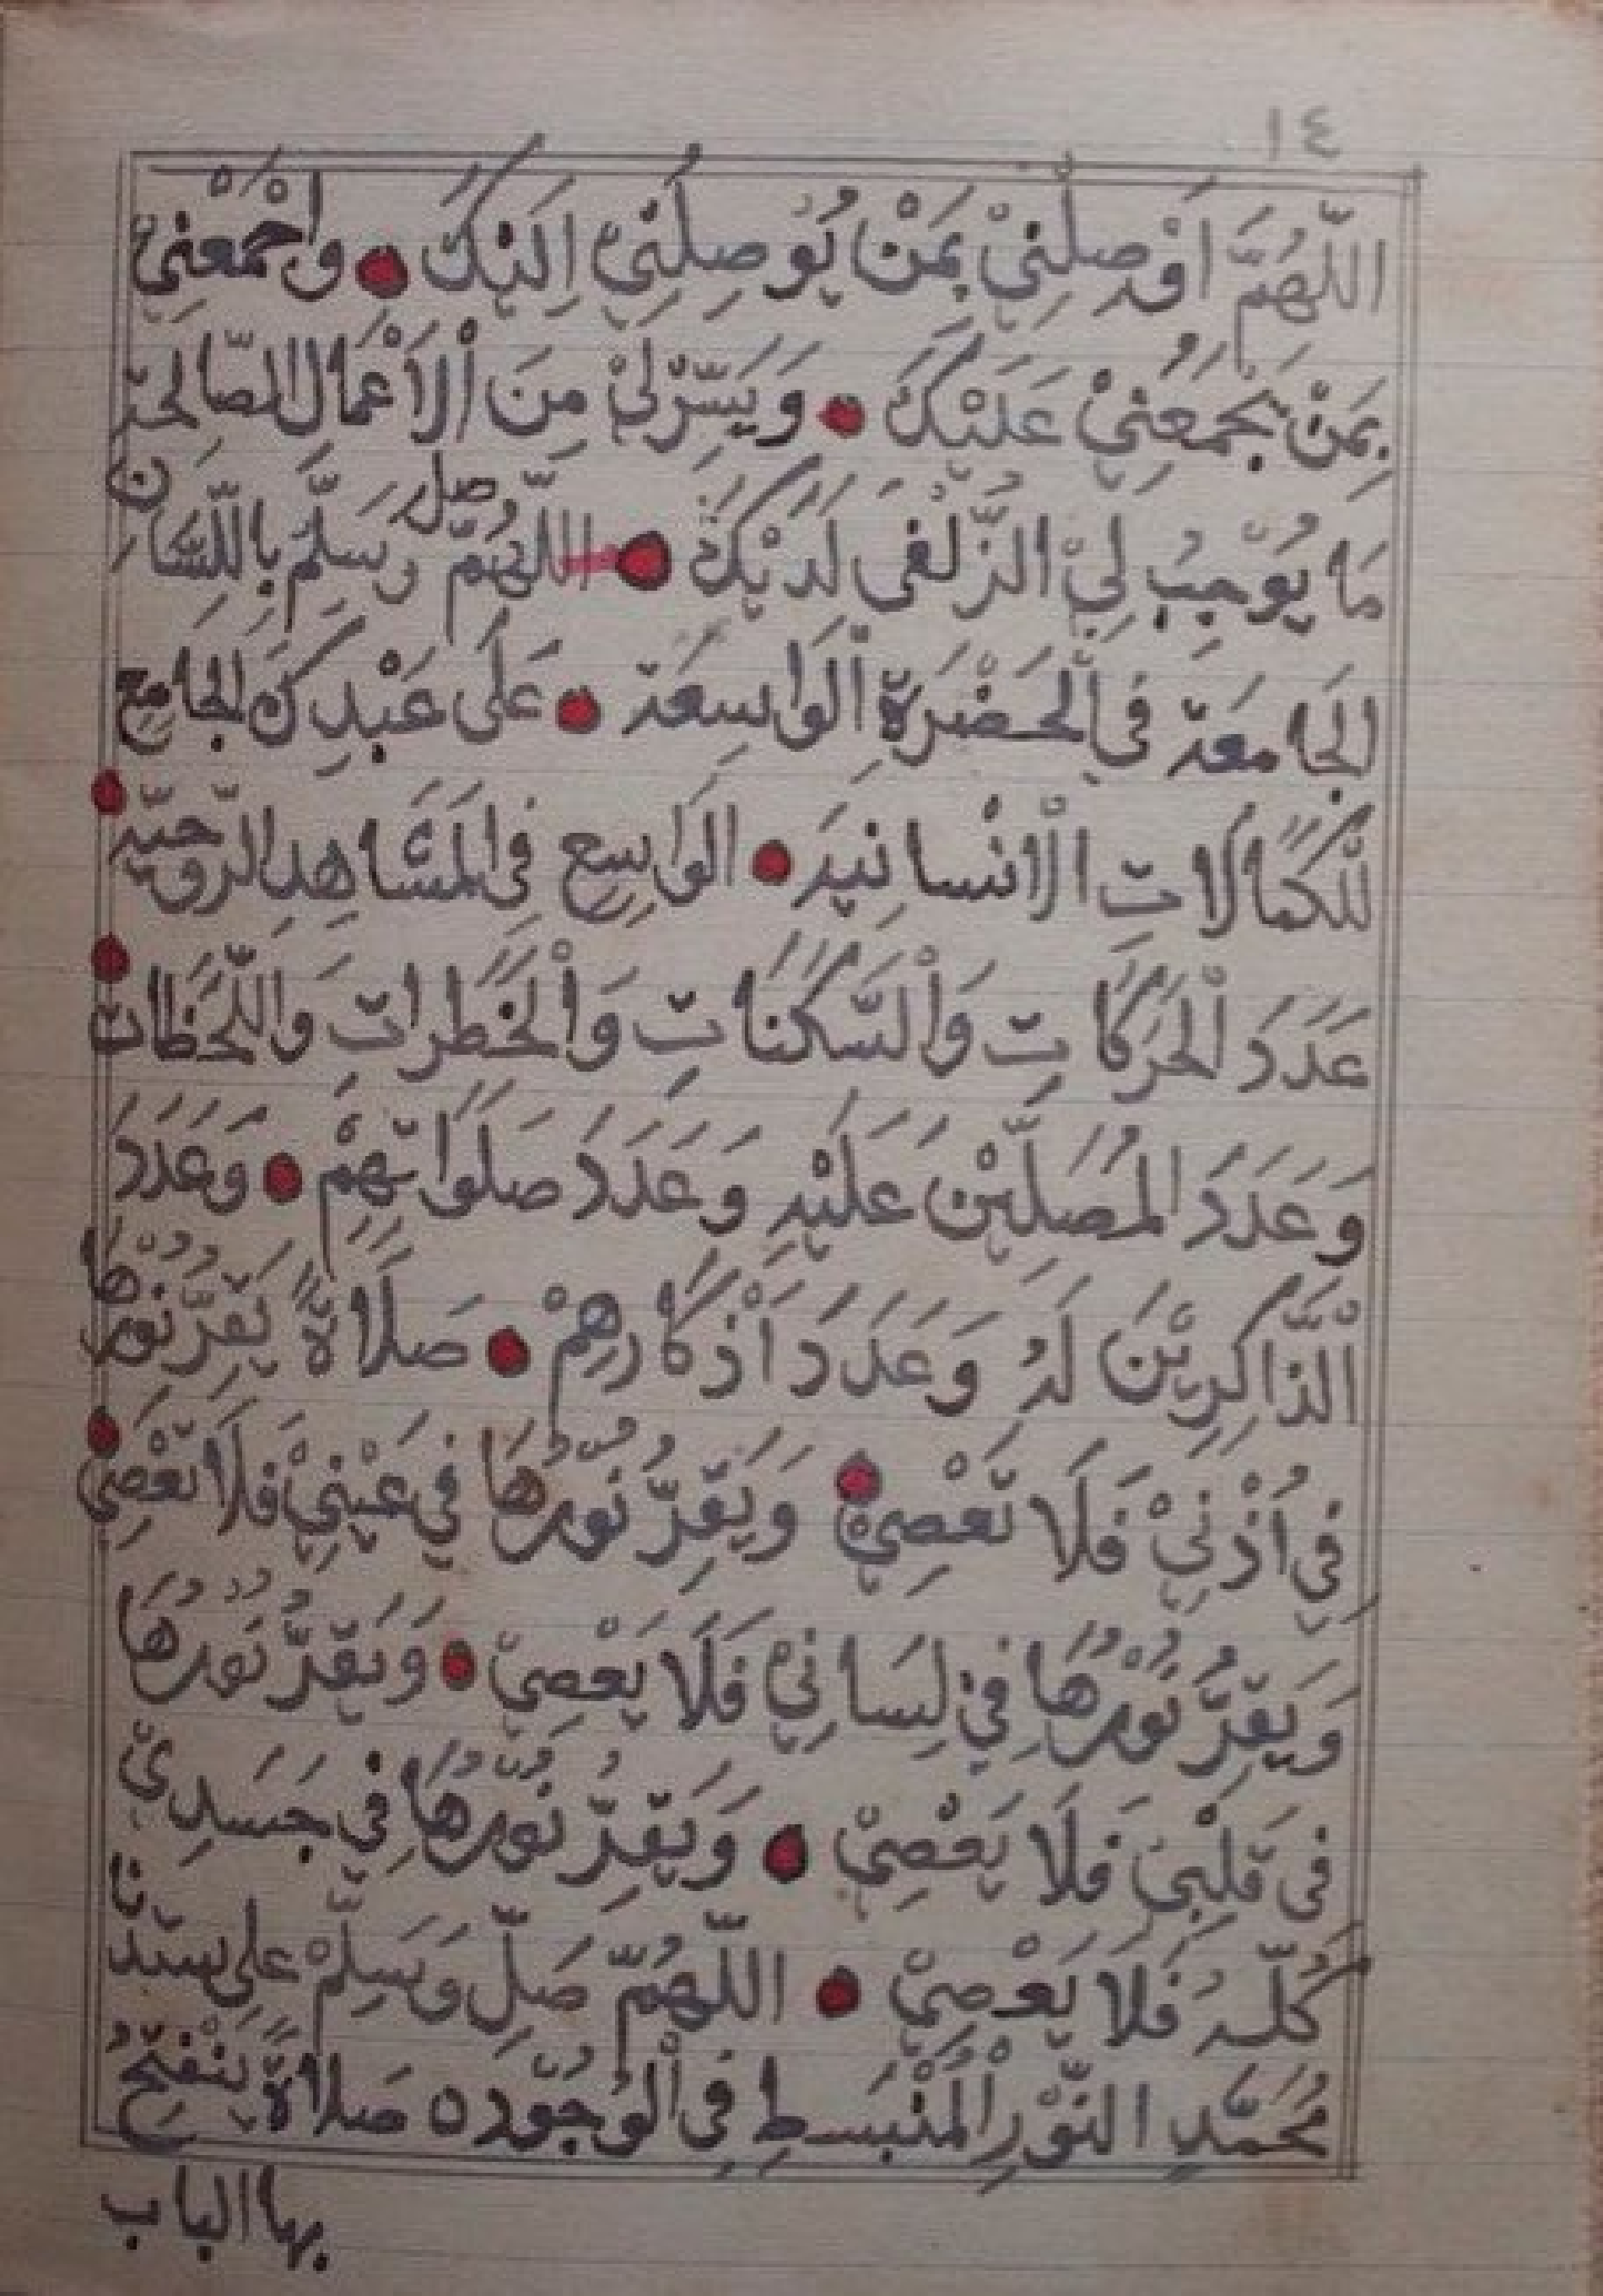 ١٤
اللّٰهُمَّ اَوْصِلْنِيْ بِمَنْ يُوصِلُنِيْ اِلَيْكَ • وَاجْمَعْنِيْ
بِمَنْ يَجْمَعُنِيْ عَلَيْكَ • وَيَسِّرْ لِيْ مِنَ اْلاَعْمَالِ الصّالِحَةِ
مَا يُوْجِبُ لِيْ الزُّلْفَى لَدَيْكَ • اللّٰهُمَّ صل وَسَلِّمْ بِاللِّسَانِ
الجَامعَة فيِ الحَضْرَةِ اْلوَاسِعَة • عَلَى عَبْدِكَ الجَامِعِ
لِلْكَمَالاَتِ الْاِنْسانِيَه • الوَاسِعِ فِي المَشَاهِدِ الرّوحيّه •
عَدَدَ اْلحَرَكَاتِ وَاْلسَّكَنَاتِ وَاْلخَطَرَاتِ وَاللَّحَظَات •
وَعَدَدَ المُصَلِّيْنَ عَلَيْهِ وَعَدَدَ صَلَوَاتِهِمْ • وَعَدَدَ
اْلذَّاكِرِيْنَ لَهُ وَعَدَدَ اَذْكَارِهِمْ • صَلَاةً يَقِرُّ نُوْرُهَا
فِي اُذْنِيْ فَلَا تَعْصِيْ • وَيَقِرُّ نُوْرُهَا فيِ عَيْنِيْ فَلَا تَعْصِيْ •
وَيَقِرُّ نُوْرُهَا فِيْ لِسَانِيْ فَلَا يَعْصِيْ • وَيَقِرُّ نُوْرُهَا
فى قَلْبِيْ فَلَا يَعْصِيْ • وَيَقِرُّ نُوْرُهَا فِي جَسَدِيْ
كُلِّهُ فَلَا يَعْصِيْ • اللّٰهُمَّ صَلِّ وَسَلِّمْ عَلى سيّدنا
مُحَمَّدٍ النُّوْرِ اْلمُنْبَسطِ فِي اْلوُجُوْدِ ٥ صَلَاةً يَنْفَتِحُ
بها الباب